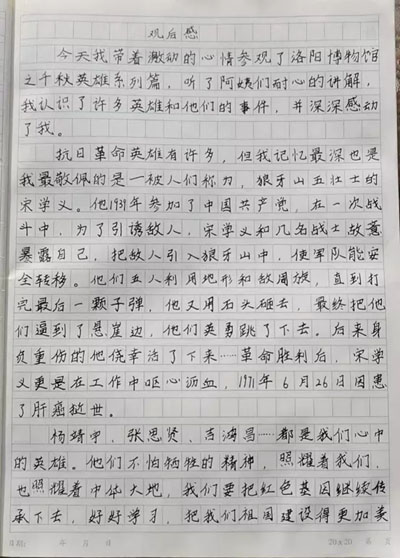 观后感
今天我带着激动的心情参观了洛阳博物馆
之千秋英雄系列篇，听了阿姨们耐心的讲解，
我认识了许多英雄和他们的事件，并深深感动
了我。
抗日革命英雄有许多，但我记忆最深也是
我最敬佩的是一被人们称为，狼牙山五壮士的
宋学义。他1939年参加了中国共产党，在一次战
斗中，为了引诱敌人，宋学义和几名战士故意
暴露自己，把敌人引入狼牙山中，使军队能安
全转移。他们五人利用地形和敌周旋，直到打
完最后一颗子弹，他又用石头砸去，最终把他
们逼到了悬崖边，他们英勇跳了下去。后来身
负重伤的他侥幸活了下来……革命胜利后，宋学
义更是在工作中呕心沥血，1971年6月26日因患
了肝癌故世。
杨靖宇，张思贤、吉鸿昌……都是我们心中
的英雄。他们不怕牺牲的精神，照耀着我们，
也照耀着中华大地，我们要把红色基因继续传
承下去，好好学习，把我们祖国建设得更加美
日期： 年 月 日 20×20 第 页